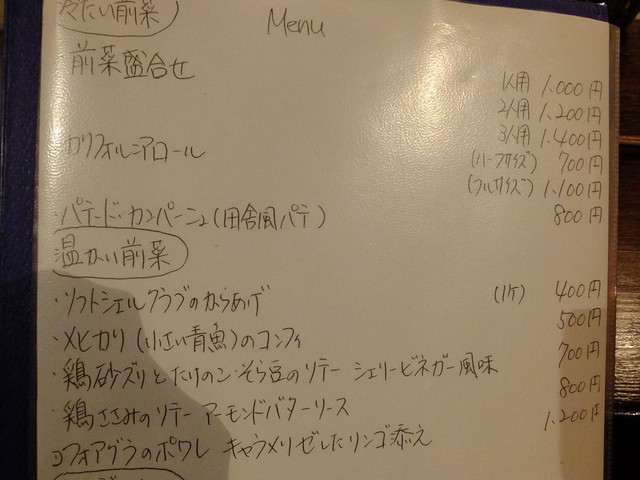 冷たい前菜
Menu
・前菜盛合せ 1人用 1.000円
2人用 1.200円
3人用 1.400円
カリフォルニアロール (ハーフサイズ) 700円
(フルサイズ) 1.100円
・パテ・ド・カンパーニュ(田舎風パテ) 800円
温かい前菜
・ソフトシェルクラブのからあげ (1ケ) 400円
・メヒカリ(小さい青魚)のコンフィ 500円
・鶏砂ズリとたけのこ・そら豆のソテー シェリービネガー風味 700円
・鶏ささみのソテー アーモンドバターソース 800円
フォアグラのポワレ キャラメリゼしたリンゴ添え 1.200円